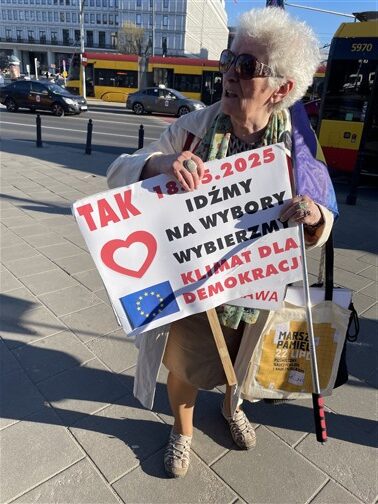 5970
TAK
18.05.2025
IDŹMY
NA WYBORY
WYBIERZMY
KLIMAT DLA
DEMOKRACJI
MARSZ
PAMIĘCI
22 LIPCA